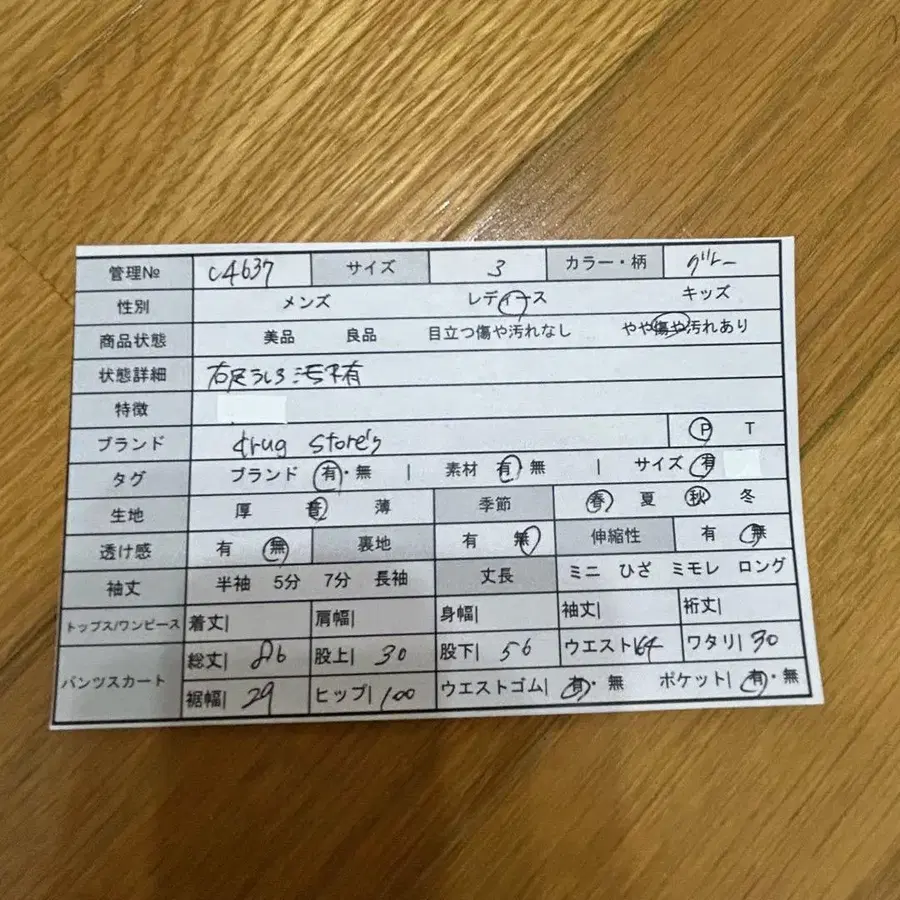 管理№ C4637 サイズ 3 カラー・柄 グレー
性別 メンズ レディース キッズ
商品状態 美品 良品 目立つ傷や汚れなし やや傷や汚れあり
状態詳細 右足うしろ 汚れ有
特徴
ブランド drug store's P T
タグ ブランド 有・無 | 素材 有・無 | サイズ 有
生地 厚 普 薄 季節 春 夏 秋 冬
透け感 有 無 裏地 有 無 伸縮性 有 無
袖丈 半袖 5分 7分 長袖 丈長 ミニ ひざ ミモレ ロング
トップス/ワンピース 着丈| 肩幅| 身幅| 袖丈| 裄丈|
パンツスカート 総丈| 86 股上| 30 股下| 56 ウエスト| 64 ワタリ| 30
裾幅| 29 ヒップ| 100 ウエストゴム| 有・無 ポケット| 有・無